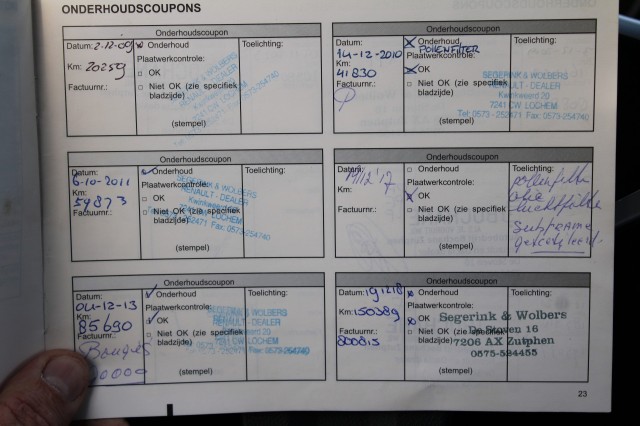 ONDERHOUDSCOUPONS
Onderhoudscoupon
Datum: 2-12-09
Km: 20259
Factuurnr.:
Onderhoud
Plaatwerkcontrole:
OK
Niet OK (zie specifiek bladzijde)
(stempel)
Toelichting:
SEGERINK & WOLBERS
RENAULT - DEALER
7241 CW LOCHEM
Onderhoudscoupon
Datum:
14-12-2010
Km:
41830
Factuurnr.:
Onderhoud
POLLENFILTER
Plaatwerkcontrole:
OK
Niet OK (zie specifiek
bladzijde)
(stempel)
Toelichting:
SEGERINK & WOLBERS
RENAULT - DEALER
Kwinkweerd 20
7241 CW LOCHEM
Tel. 0573 - 252471 Fax: 0573-254740
Onderhoudscoupon
Datum:
6-10-2011
Km:
59873
Factuurnr.:
Onderhoud
Plaatwerkcontrole:
OK
Niet OK (zie specifiek
bladzijde)
(stempel)
Toelichting:
SEGERINK & WOLBERS
RENAULT - DEALER
Kwinkweerd 20
7241 CW LOCHEM
Fax: 0573-254740
Onderhoudscoupon
Datum:
19/12'17
Km:
Factuurnr.:
Onderhoud
Plaatwerkcontrole:
OK
Niet OK (zie specifiek
bladzijde)
(stempel)
Toelichting:
pollenfilter
olie
luchtfilter
Subframe
Onderhoudscoupon
Datum:
04-12-13
Km:
85690
Factuurnr.:
Bougies
Onderhoud
Plaatwerkcontrole:
OK
Niet OK (zie specifiek
bladzijde)
(stempel)
Toelichting:
SEGERINK & WOLBERS
RENAULT - DEALER
7241 CW LOCHEM
Fax: 0573-254740
Onderhoudscoupon
Datum: 191218
Km: 150389
Factuurnr.:
800815
Onderhoud
Plaatwerkcontrole:
OK
Niet OK (zie specifiek
bladzijde)
(stempel)
Toelichting:
Segerink & Wolbers
De Stoven 16
7206 AX Zutphen
0575-524455
23